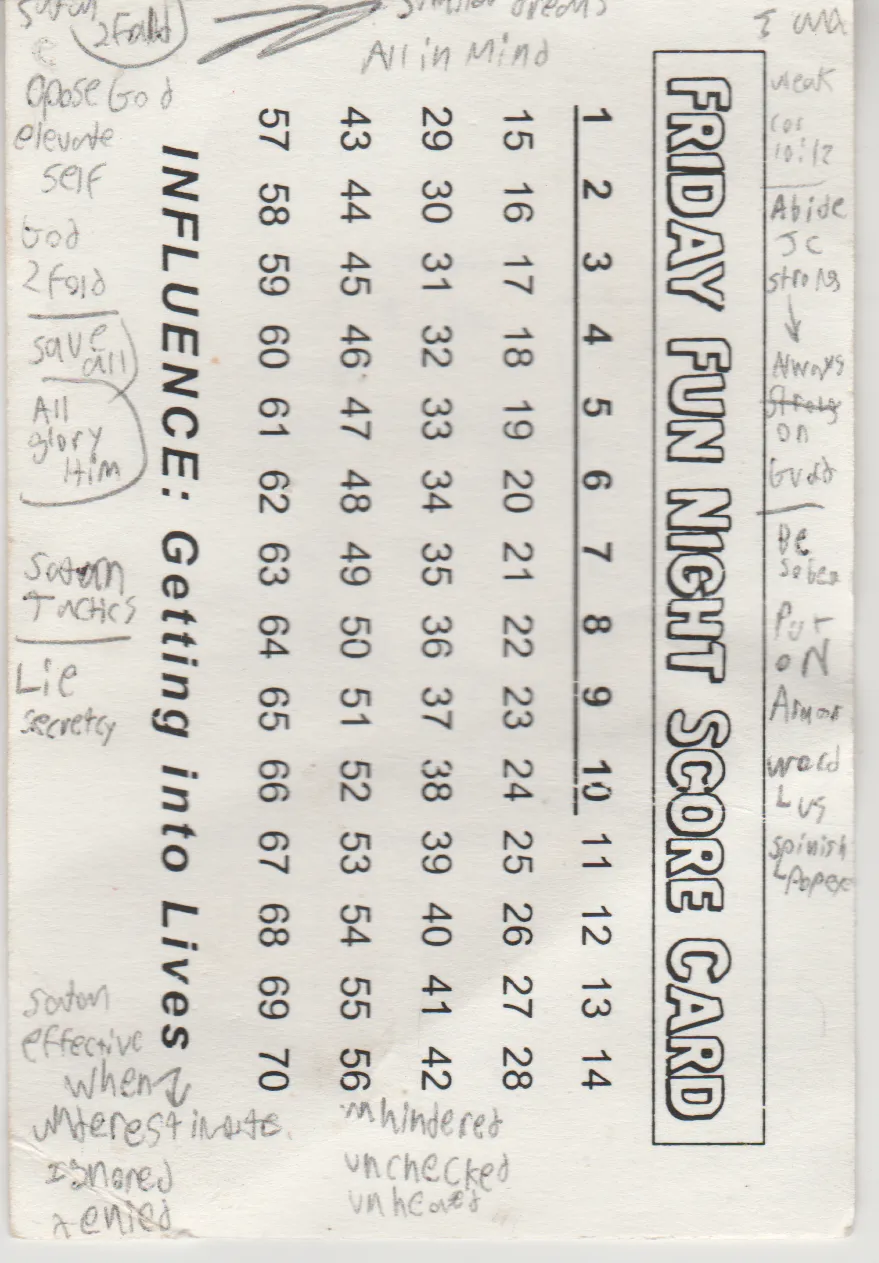 2Fold
All in Mind
Opose God
elevate
self
God
2 fold
save
all
All
glory
Him
Satan
Tactics
Lie
secretcy
Satan
effective
when
Ignored
denied
unhindered
unchecked
FRIDAY FUN NIGHT SCORE CARD
1 2 3 4 5 6 7 8 9 10 11 12 13 14
15 16 17 18 19 20 21 22 23 24 25 26 27 28
29 30 31 32 33 34 35 36 37 38 39 40 41 42
43 44 45 46 47 48 49 50 51 52 53 54 55 56
57 58 59 60 61 62 63 64 65 66 67 68 69 70
INFLUENCE: Getting into Lives
weak
10:12
Abide
JC
strong
Always
on
Guard
Be
sober
Put
ON
Armor
word
us
spinish
Popeye